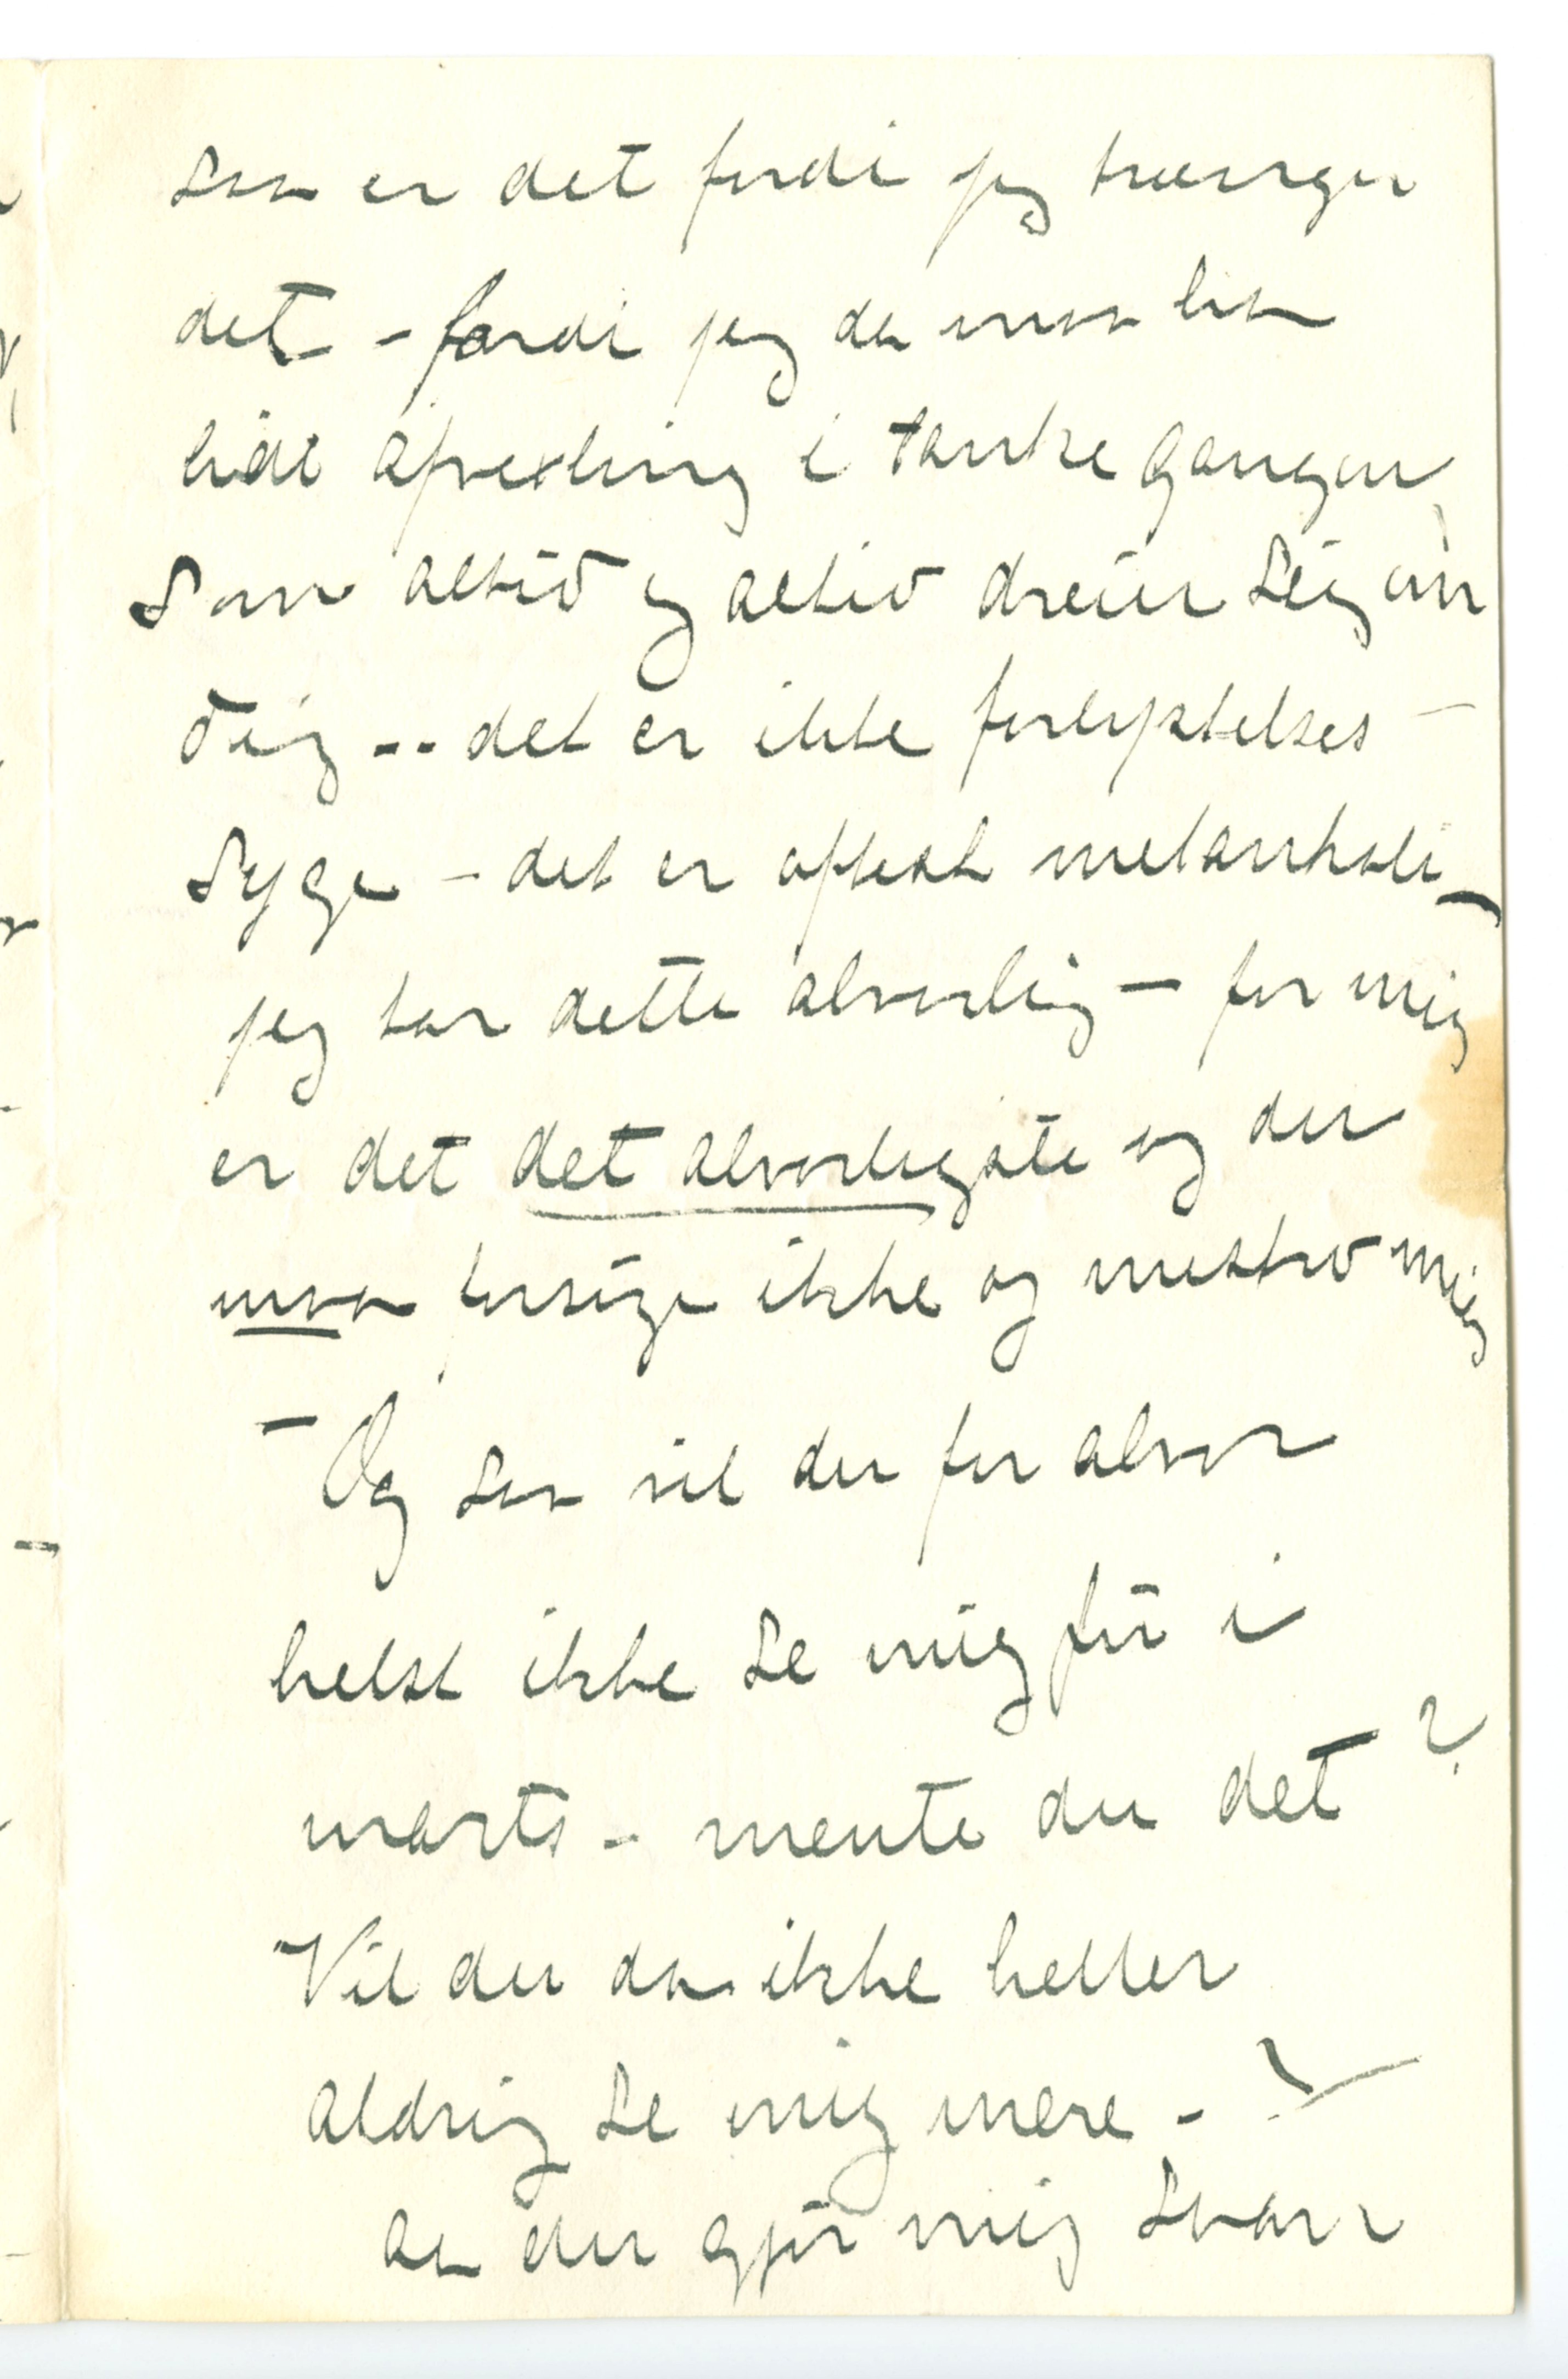 saa er det fordi jeg trænger
det – fordi jeg da maa ha
lidt afvexling i tankegangen,
som altid og altid dreier sig om
dig -- det er ikke forlystelses-
syge – det er oftest melankoli –
jeg tar dette alvorlig – for mig
er det det alvorligste og du
maa ikke og mistro mig
– Og saa vil du for alvor
helst ikke se mig før i
marts – mente du det?
Vil du da ikke heller
aldrig se mig mere – ?
Aa du gjør mig